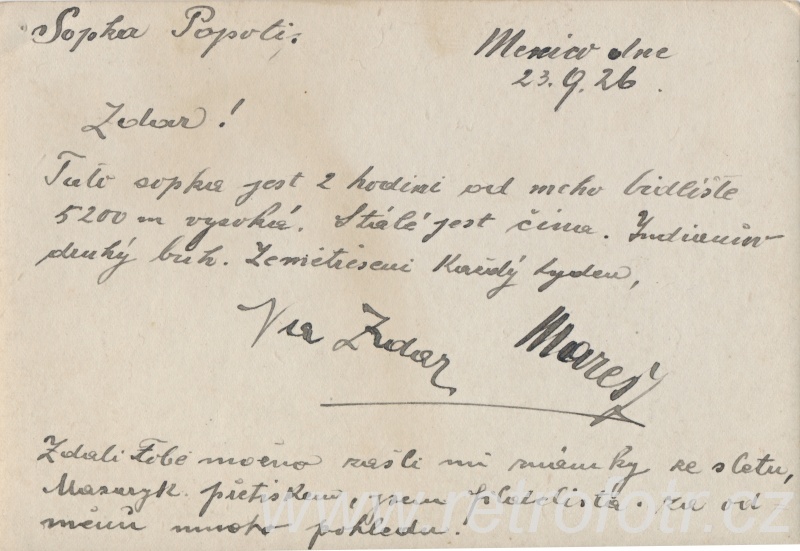 Sopka Popoti.
Mexico dne
23.9.26.
Zdar!
Tato sopka jest 2 hodini od meho bidliště
5200 m vysoká. Stálé jest čina. Indianův
druhý buh. Zemětřeseni každý tyden,
Na Zdar Mareš
Zdali Tobě možno zašli mi známky ze sletu,
Masaryk. přetiskem, jsem filatelista. Za od
měnu mnoho pohledu!
www.retrofotr.cz